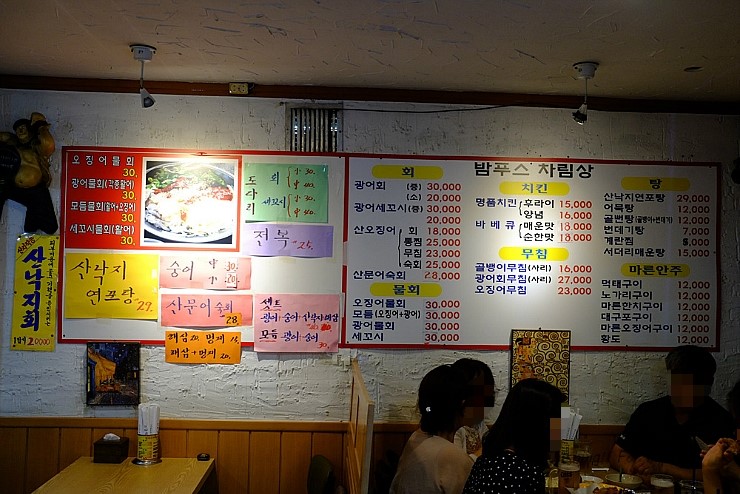 오징어물회
30.
광어물회(각종활어)
30.
모듬물회(광어+오징어)
30.
세꼬시물회(활어)
30.
도다리
회 小 30.
中 40.
세꼬시 小 30.
中 40.
전복 25.
산낙지
연포탕 29.
숭어 中 30.
小 20.
산문어숙회
28.
해삼 20. 멍게 15.
해삼+멍게 20.
셋트
광어·숭어·산낙지·해삼
모듬 광어·숭어
30.
산낙지회
밤푸스 차림상
회
광어회 (중) 30,000
(소) 20,000
광어세꼬시 (중) 30,000
20,000
산오징어 회 18,000
통찜 25,000
무침 23,000
숙회 25,000
산문어숙회 28,000
물회
오징어물회 30,000
모듬(오징어+광어) 30,000
광어물회 30,000
세꼬시 30,000
치킨
명품치킨 후라이 15,000
양념 16,000
바베큐 매운맛 18,000
순한맛 18,000
무침
골뱅이무침(사리) 16,000
광어회무침(사리) 27,000
오징어무침 23,000
탕
산낙지연포탕 29,000
어묵탕 12,000
골뻔탕(골뱅이+번데기) 12,000
번데기탕 7,000
계란찜 6,000
서더리매운탕 15,000
마른안주
먹태구이 12,000
노가리구이 12,000
마른한치구이 12,000
대구포구이 12,000
마른오징어구이 12,000
황도 12,000